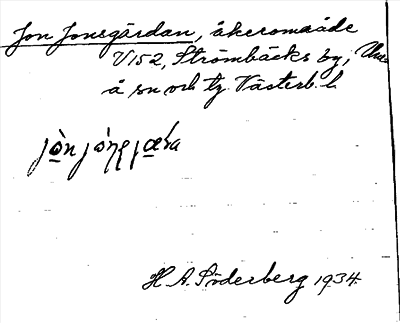 Jon Jonsgärdan, åkeromåde
V152, Strömbäcks by, Ume
å sn och tg. Västerb. l.
jòn jón
H. A. Söderberg 1934.